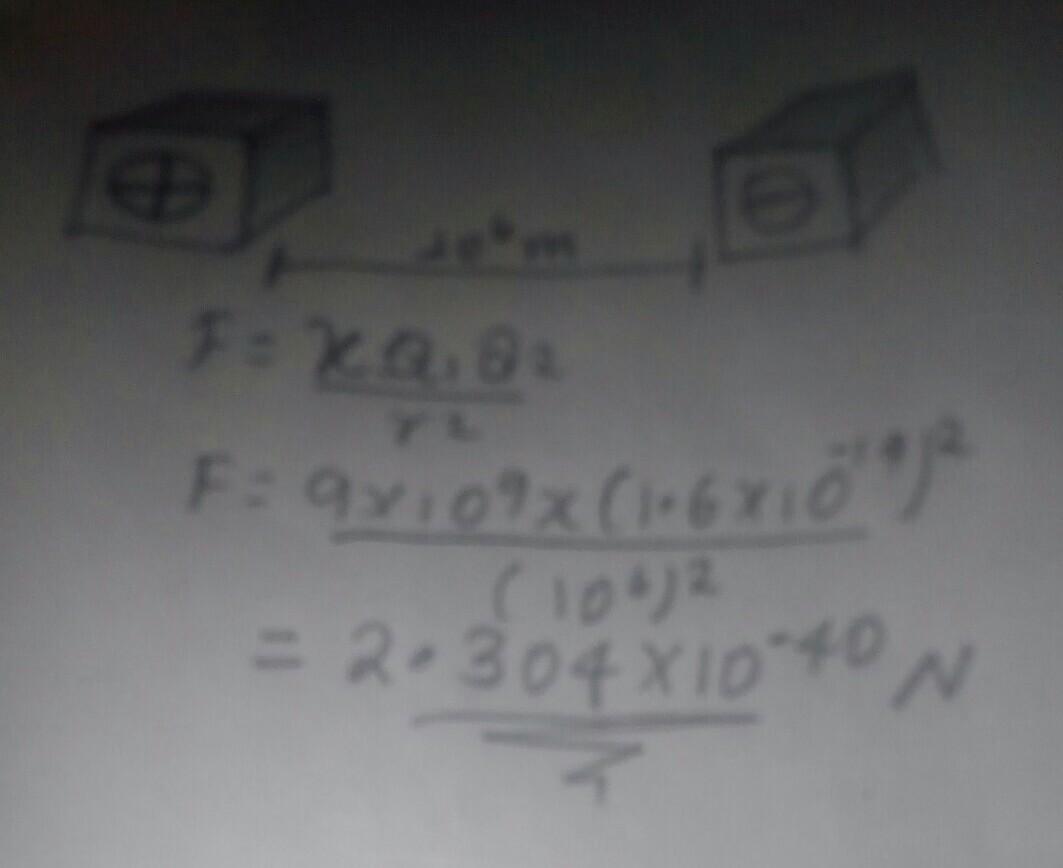 ⊕ ⊖
10⁶m
F = KQ₁Q₂
r²
F = 9x10⁹x(1.6x10⁻¹⁹)²
(10⁶)²
= 2.304x10⁻⁴⁰ N